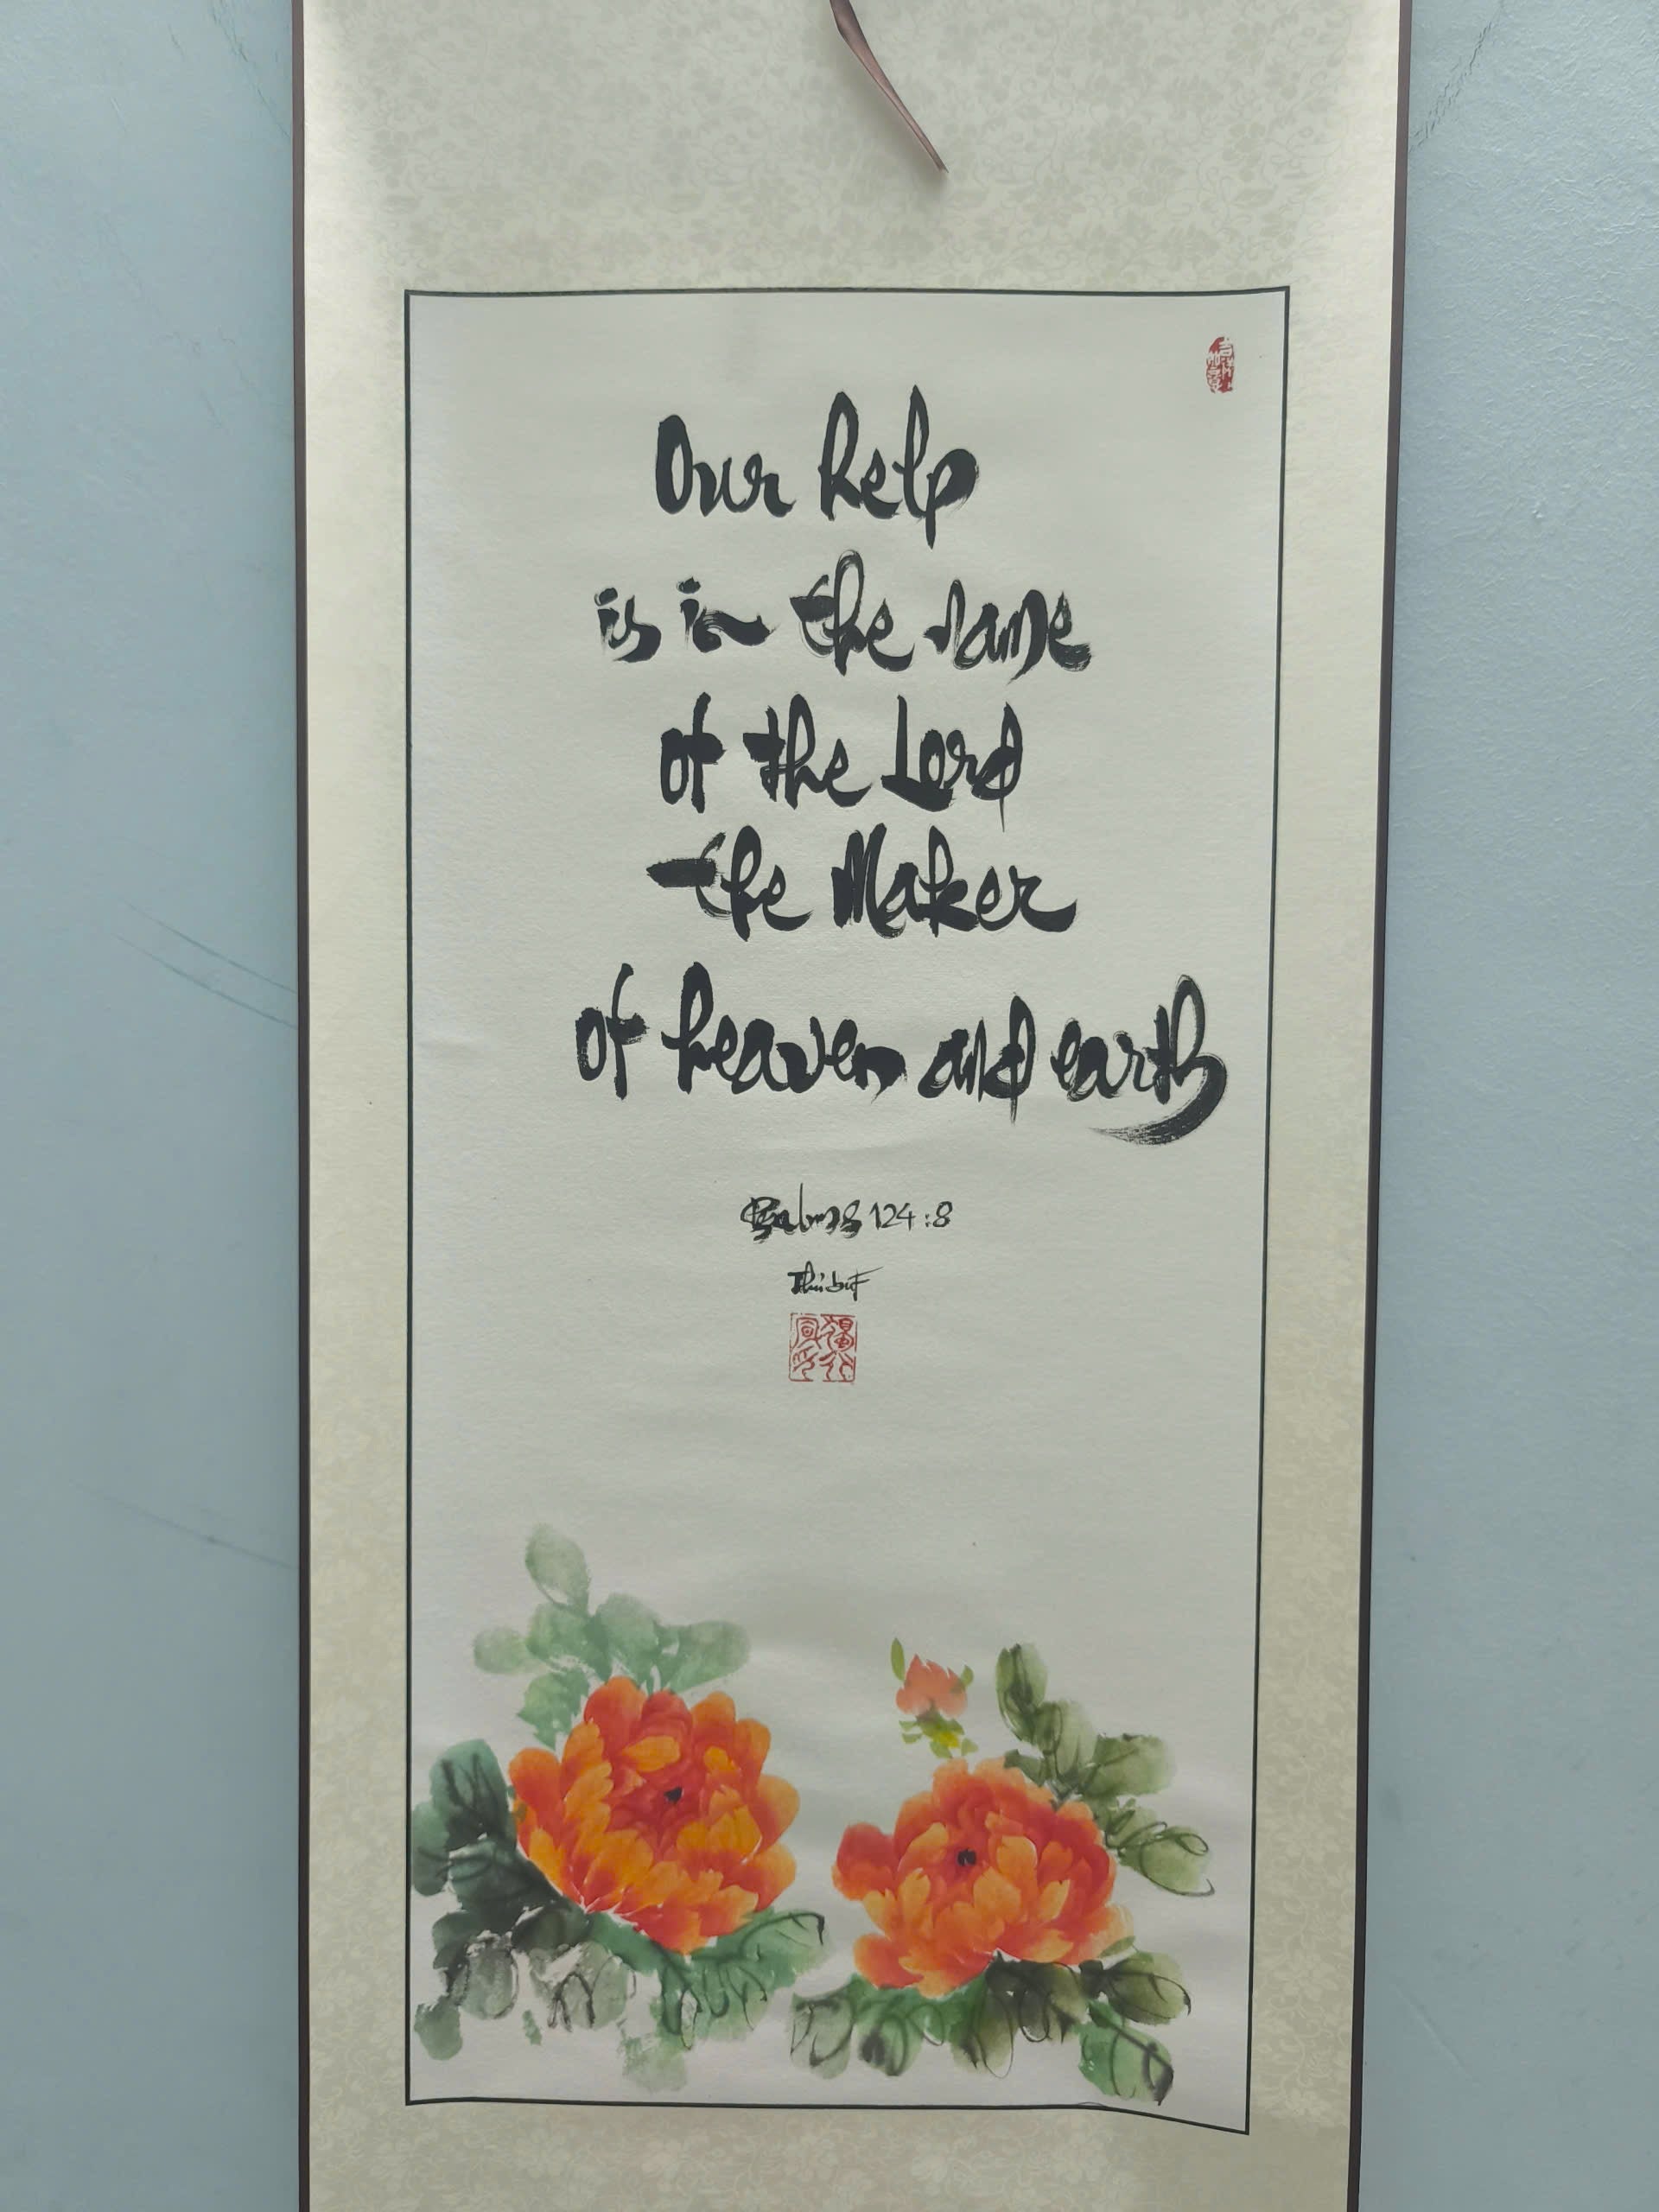 Our help
is in the name
of the Lord
the Maker
of heaven and earth
Psalms 124:8